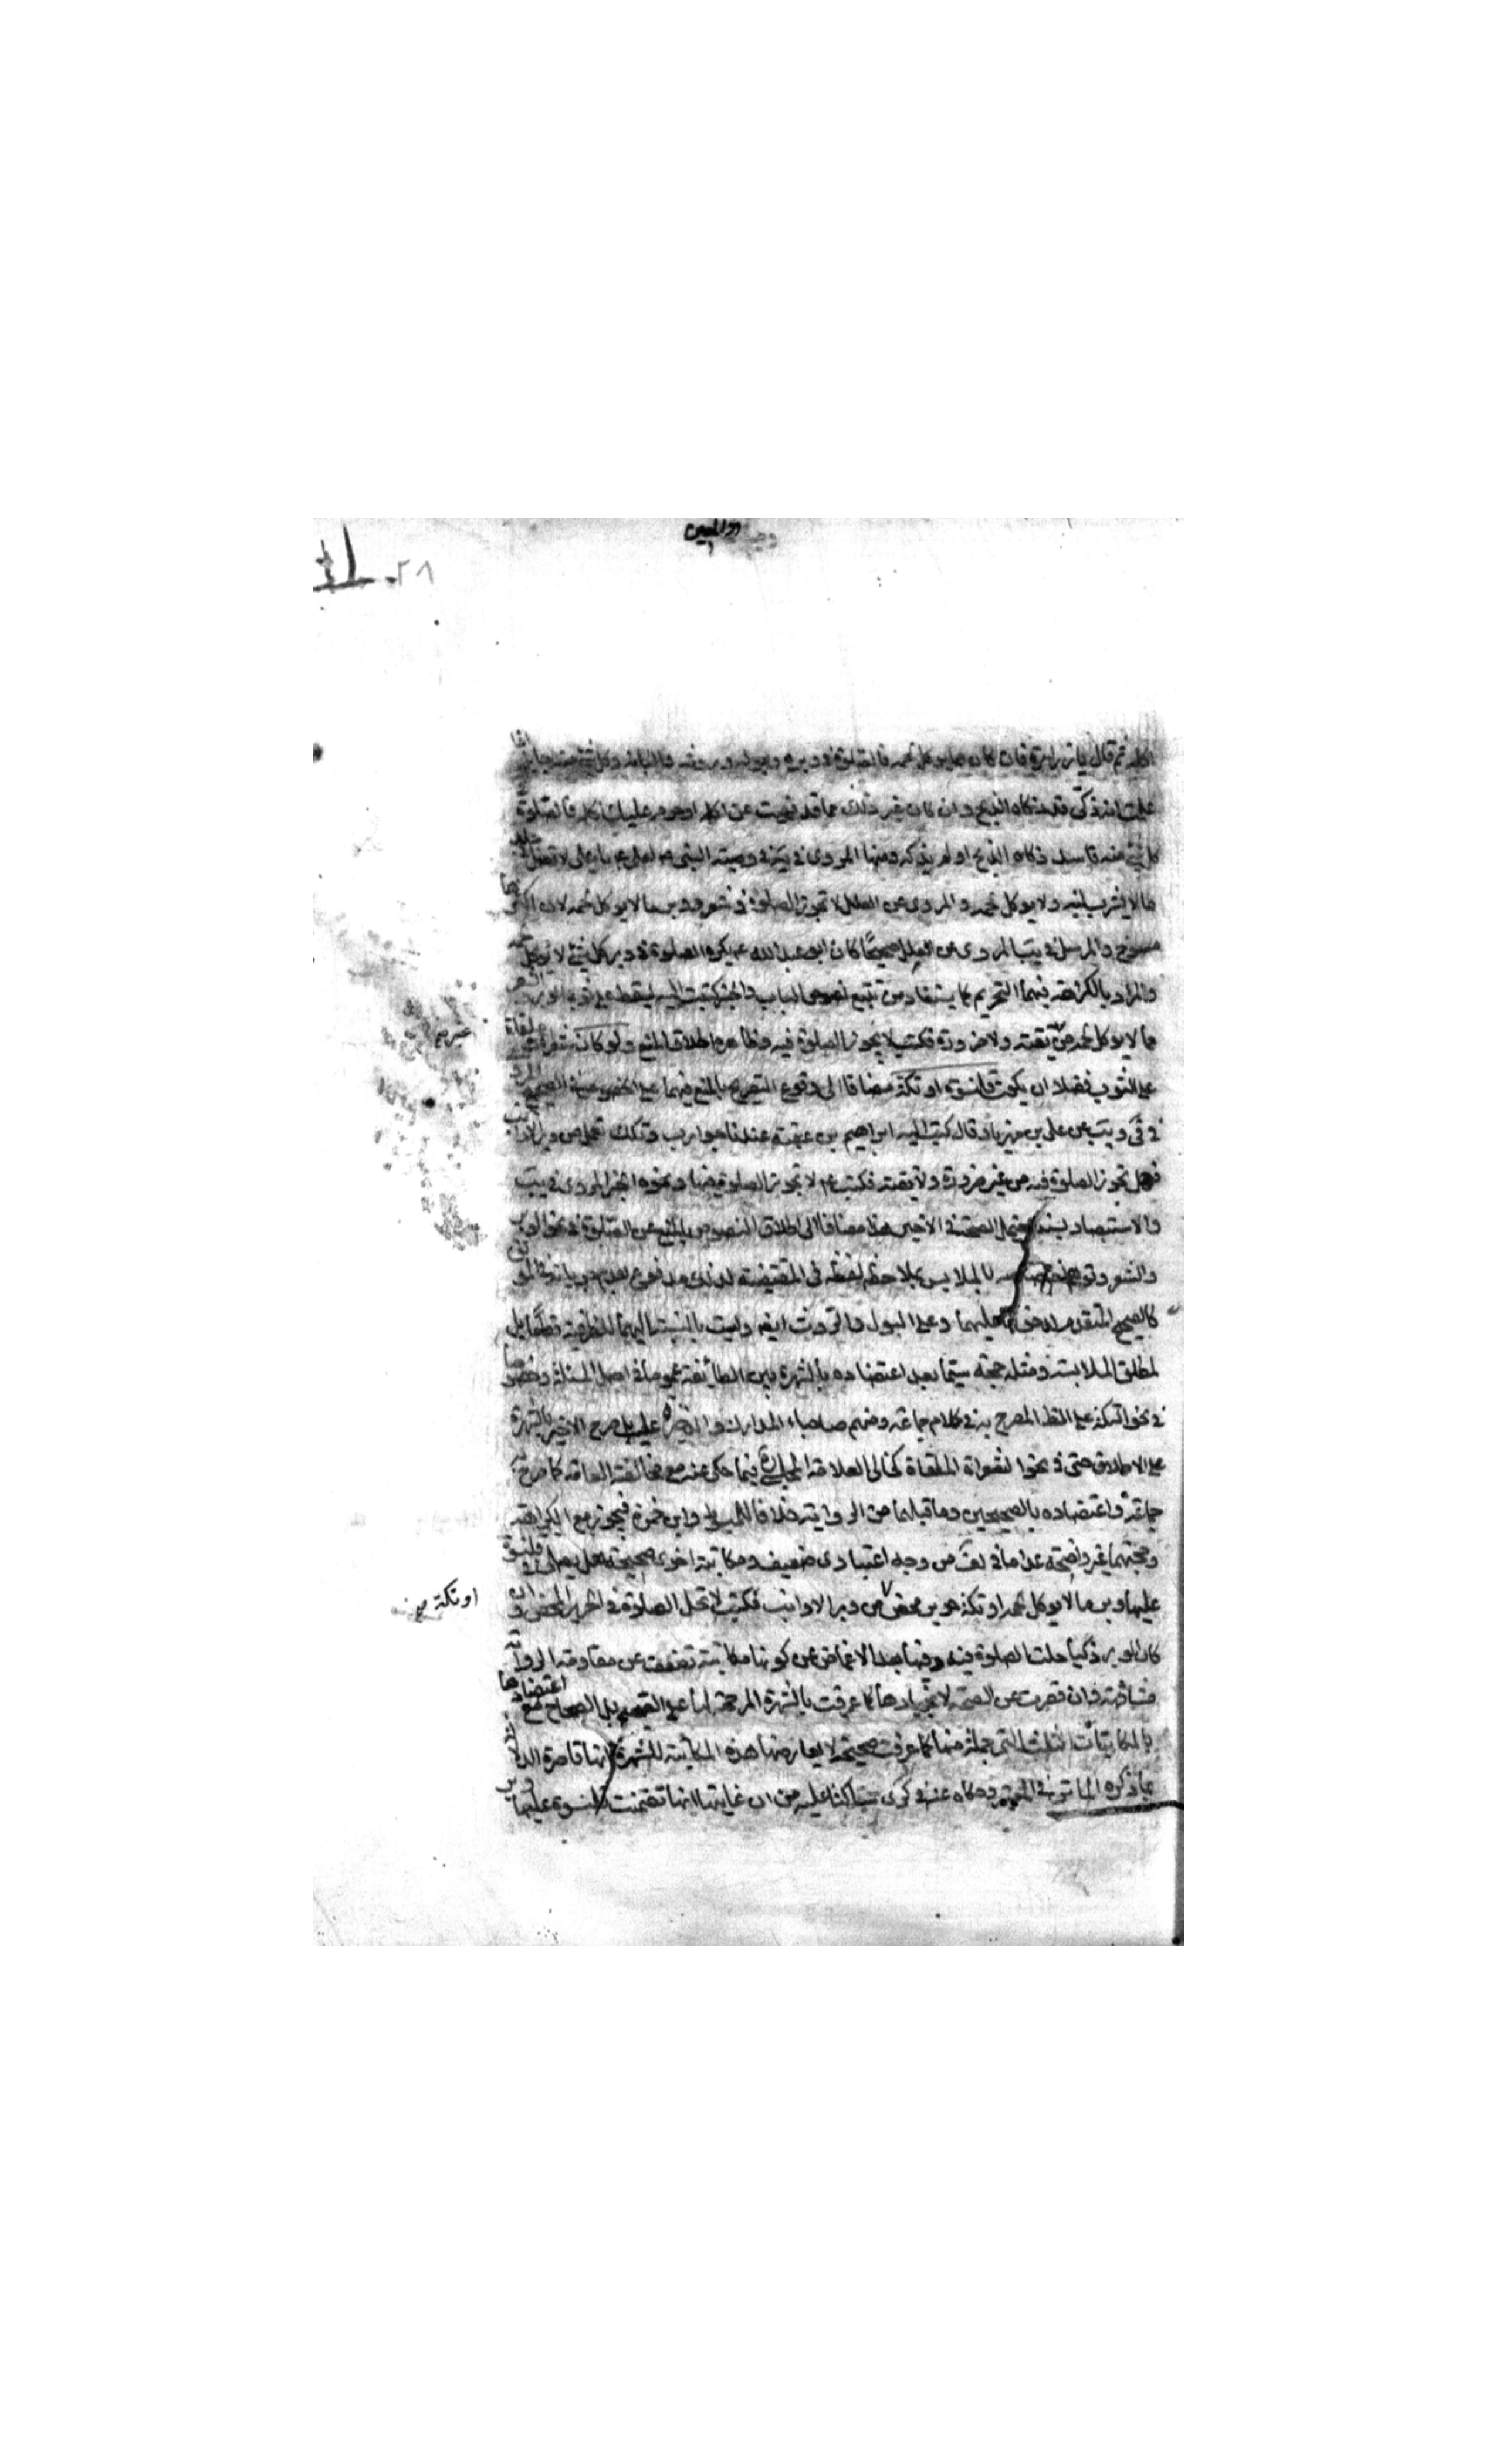 اكله ثم قال يا زرارة فان كان مما يوكل لحمه فالصلوة فى وبره وبوله وروثه والبانه وكل شئ منه جايز اذا
علمت انه ذكى قد ذكاه الذبح وان كان غير ذلك مما قد نهيت عن اكله او حرم عليك اكله فالصلوة فى
كل شئ منه فاسد ذكاه الذبح او لم يذكه ومنها المروى فى يه فى وصيته النبى ص لعلى ع يا على لا تصل فى جلد
ما لا يشرب لبنه ولا يوكل لحمه والمروى عن العلل لا تجوز الصلوة فى شعر ووبر ما لا يوكل لحمه لان اكثرها
مسوخ والمرسل فى يب المروى عن العلل صحيحًا كان ابو عبد الله ع يكره الصلوة فى وبر كل شئ لا يوكل لحمه
والمراد بالكراهة فيهما التحريم كما يستفاد من تتبع نصوص الباب والخبر كتبت اليه يسقط على ثوبى الوبر والشعر
مما لا يوكل لحمه من غير تقية ولا ضرورة فكتب لا يجوز الصلوة فيه وظاهره اطلاق المنع ولو كان شعرات ملقاة
على الثوب فضلا ان يكون قلنسوة او تكة مضافا الى وقوع التصريح بالمنع فيهما على الخصوص فى الصحيح المروى
فى فى ويب عن على بن مهزيار قال كتب اليه ابراهيم بن عقبة عندنا جوارب وتكك تعمل من وبر الارانب
فهل تجوز الصلوة فيه من غير ضرورة ولا تقية فكتب ع لا تجوز الصلوة فيها ونحوه الخبر المروى فى يب
والاستبصار بسند يحتمل الصحة فى الاخير هذا مضافا الى اطلاق النصوص بالمنع عن الصلوة فى نحو الوبر
والشعر وتوهم بالملابس بملاحظة لفظة فى المقتضية لذلك مدفوع بعدم جريانه فى الموثق
كالصحيح المتقدم لدخولها عليهما وعلى البول والروث ايضا وليست بالنسبة اليهما للظرفية قطعًا بل
لمطلق الملابسة ومثله حجة سيما بعد اعتضاده بالشهرة بين الطائفة عموما فى اصل المسئلة وخصوصا
فى نحو التكة على النظر المصرح به فى كلام جماعة ومنهم صاحبا المدارك والذخيرة عليه بل صرح الاخير بالشهرة
على الاطلاق حتى فى نحو الشعرات الملقاة كخالى العلامة المجلسى ره فيما حكى عنه مع مخالفته العامة كما صرح به
جماعة واعتضاده بالصحيحين وما قبلهما من الرواية خلافا للمبسوط وابن حمزة فيجوز مع الكراهة
وحجتهما غير واضحة عدا ما فى لف من وجه اعتبارى ضعيف ومكاتبة اخرى صحيحة هل يصلى فى قلنسوة
عليها وبر ما لا يوكل لحمه او تكة حرير محض من وبر الارانب فكتب لا تحل الصلوة فى الحرير المحض وان
او تكة صح
كان الوبر ذكيا حلت الصلوة فيه وفيها بعد الاغماض عن كونها مكاتبة تضعف عن مقاومة الرواية
فشاذة وان قصرت عن الصحة لانجبارها كما عرفت بالشهرة المرجحة لها على الصحيح بل الصحاح مع اعتضادها
بالمكاتبات الثلث التى جملة منها كما عرفت صحيحة لا يعارضها هذه المكاتبة للشهرة انها قاصرة الدلالة
بما ذكره الماتن فى المعتبر وحكاه عنه فى كرى ساكتا عليه من ان غايتها انها تضمنت قلنسوة عليها وبر